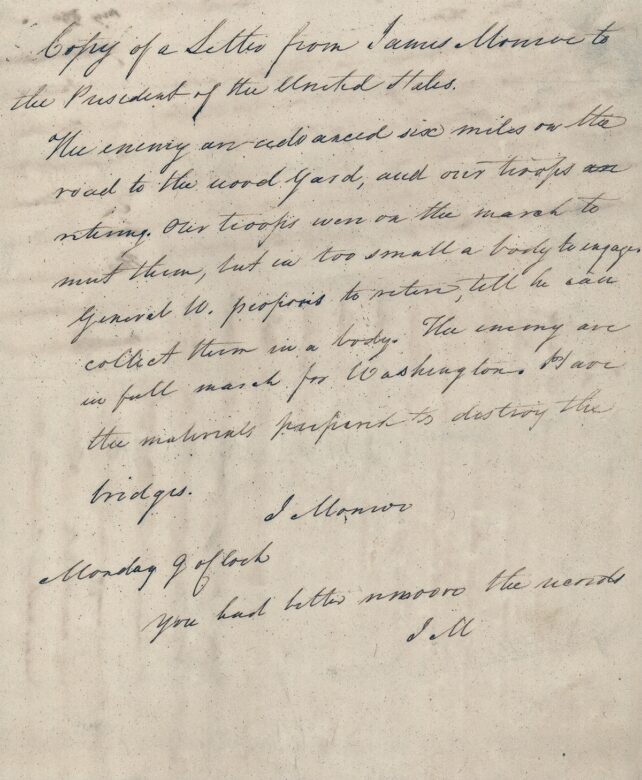 Copy of a Letter from James Monroe to
the President of the United States.
The enemy are advanced six miles on the
road to the wood Yard, and our troops are
retiring. Our troops were on the march to
meet them, but in too small a body to engage.
General W. proposes to retire, till he can
collect them in a body. The enemy are
in full march for Washington. Have
the materials prepared to destroy the
bridges.
J Monroe
Monday 9 oClock
You had better remove the records
J M